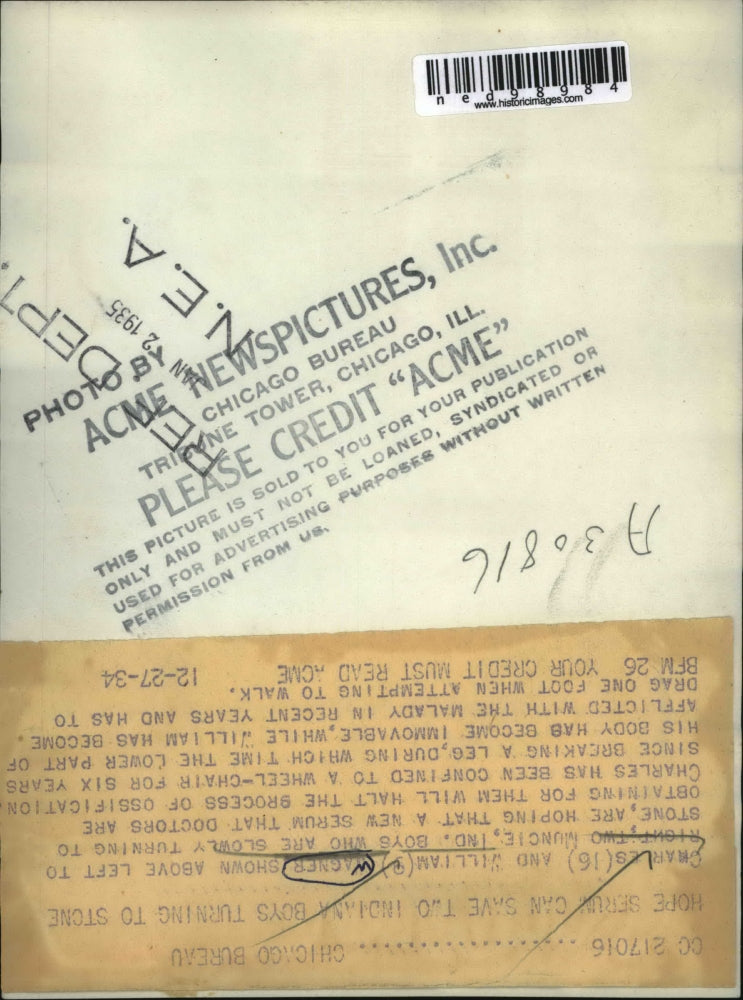 ned98984
www.historicimages.com
N. E. A.
JAN 2 1935
DEPT.
PHOTO BY
ACME NEWSPICTURES, Inc.
CHICAGO BUREAU
TRIBUNE TOWER, CHICAGO, ILL.
PLEASE CREDIT “ACME”
THIS PICTURE IS SOLD TO YOU FOR YOUR PUBLICATION
ONLY AND MUST NOT BE LOANED, SYNDICATED OR
USED FOR ADVERTISING PURPOSES WITHOUT WRITTEN
PERMISSION FROM US.
A30816
CC 217016 .................... CHICAGO BUREAU
HOPE SERUM CAN SAVE TWO INDIANA BOYS TURNING TO STONE
CHARLES(16) AND WILLIAM WAGNER SHOWN ABOVE LEFT TO
RIGHT, TWO MUNCIE, IND. BOYS WHO ARE SLOWLY TURNING TO
STONE, ARE HOPING THAT A NEW SERUM THAT DOCTORS ARE
OBTAINING FOR THEM WILL HALT THE PROCESS OF OSSIFICATION.
CHARLES HAS BEEN CONFINED TO A WHEEL-CHAIR FOR SIX YEARS
SINCE BREAKING A LEG, DURING WHICH TIME THE LOWER PART OF
HIS BODY HAS BECOME IMMOVABLE, WHILE WILLIAM HAS BECOME
AFFLICTED WITH THE MALADY IN RECENT YEARS AND HAS TO
DRAG ONE FOOT WHEN ATTEMPTING TO WALK.
BFM 26 YOUR CREDIT MUST READ ACME 12-27-34